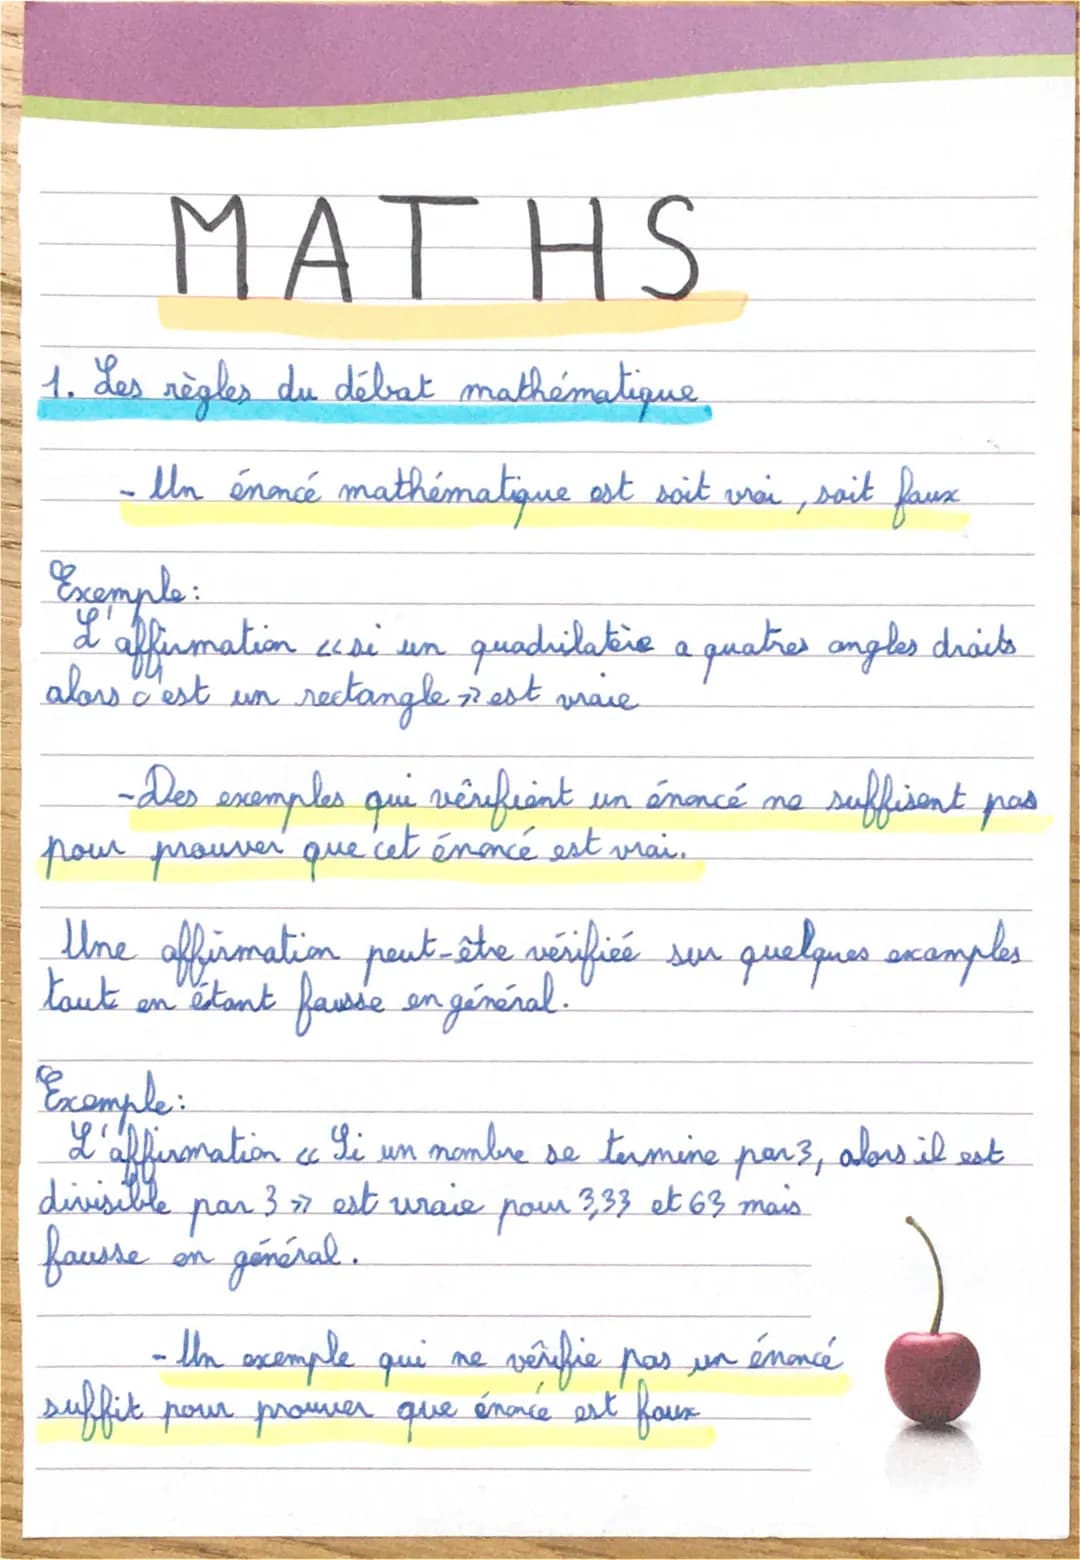 MATHS
1. Les règles du débat mathématique
- Un énoncé mathématique est soit vrai, soit faux
Exemple:
L'affirmation << si un quadrilatère a quatres angles droits
alors c'est un rectangle >> est vraie
- Des exemples qui vérifient un énoncé ne suffisent pas
pour prouver que cet énoncé est vrai.
Une affirmation peut-être vérifiée sur quelques examples
tout en étant fausse en général.
Exemple:
L'affirmation << Si un nombre se termine par 3, alors il est
divisible par 3 >> est vraie pour 3,33 et 63 mais
fausse en général.
- Un exemple qui ne vérifie pas un énoncé
suffit pour prouver que énoncé est faux